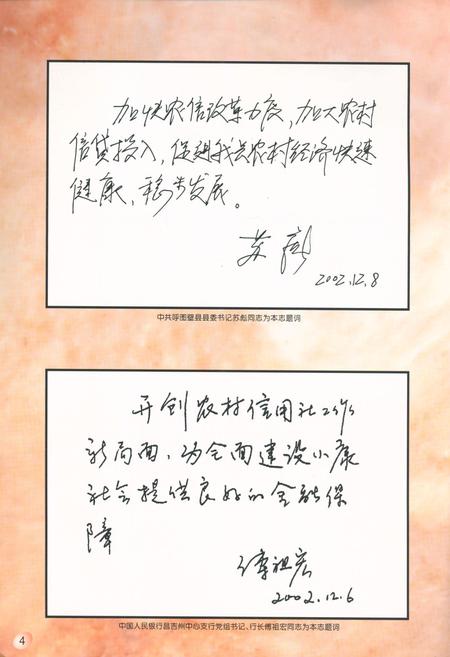 加快农信改革力度，加大农村
信贷投入，促进我县农村经济快速
健康、稳步发展。
苏彪
2002.12.8
中共呼图壁县县委书记苏彪同志为本志题词
开创农村信用社工作
新局面，为全面建设小康
社会提供良好的金融保
障
傅祖宏
2002.12.6
中国人民银行昌吉州中心支行党组书记、行长傅祖宏同志为本志题词
4